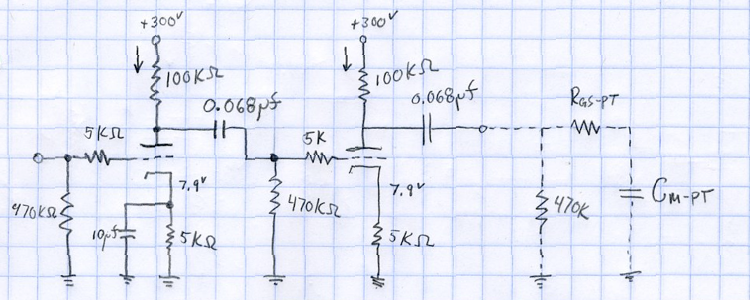 +300V
+300V
100KΩ
100KΩ
0.068µf
0.068µf
RGS-PT
5KΩ
5K
7.9V
7.9V
470KΩ
10µf
5KΩ
470KΩ
5KΩ
470K
CM-PT